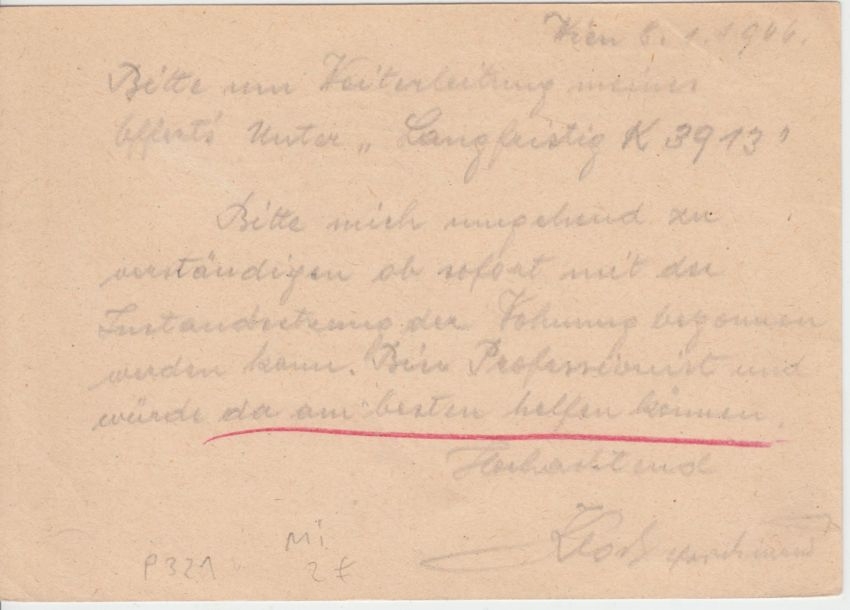 Wien 6.1.1946.
Bitte um Weiterleitung meines
Offert's Unter „Langfristig K 3913"
Bitte mich umgehend zu
verständigen ob sofort mit der
Instandsetzung der Wohnung begonnen
werden kann. Bin Professionist und
würde da am besten helfen können.
Hochachtend
P321
Mi
2 €